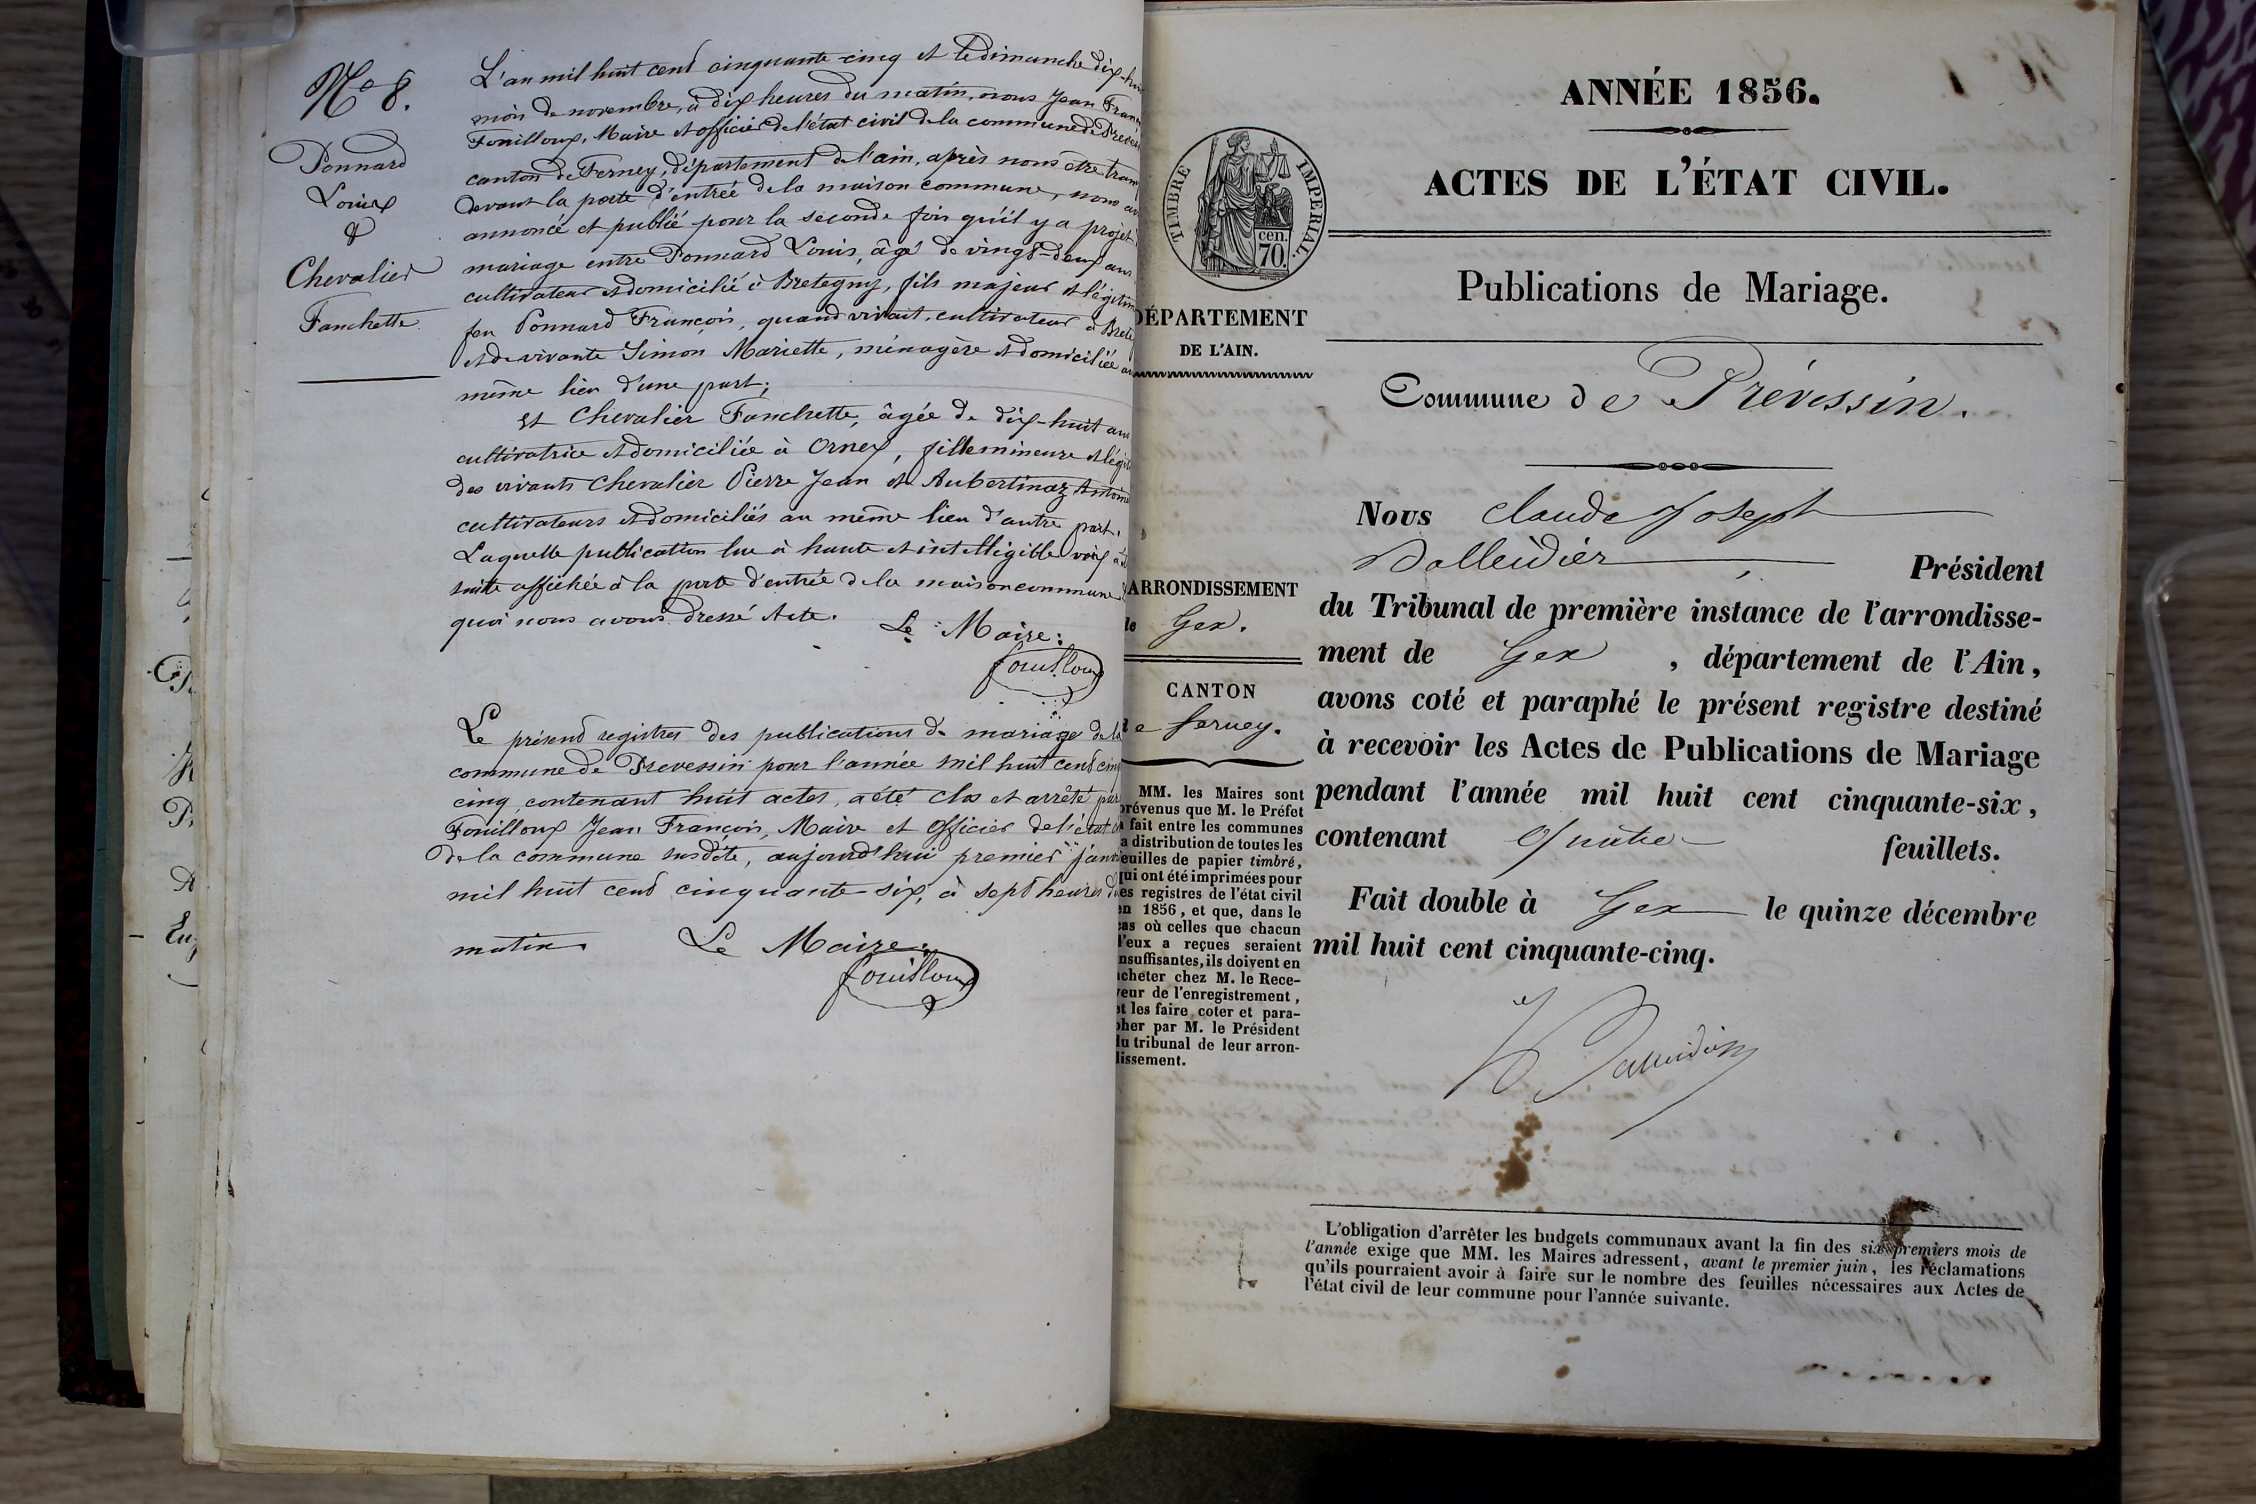 N° 8.
Ponnard
Louis
&
Chevalier
Fanchette
L'an mil huit cent cinquante-cinq et le dimanche dix-hui
mois de novembre, à dix heures du matin, nous Jean Franç
Fouilloux, Maire et officier de l'état civil de la commune de Preves
canton de Ferney, département de l'ain, après nous etre tran
devant la porte d'entrée de la maison commune, nous av
annoncé et publié pour la seconde fois qu'il y a projet
mariage entre Ponnard Louis, âgé de vingt-deux ans
cultivateur et domicilié à Bretegny, fils majeur et légitim
feu Ponnard François, quand vivant, cultivateur à Brete
et de vivante Simon Mariette, ménagère et domiciliée au
même lieu d'une part;
Et Chevalier Fanchette, âgée de dix-huit ans
cultivatrice et domiciliée à Ornex, fille mineure et légit
des vivants Chevalier Pierre Jean et Aubertinaz Antoine
cultivateurs et domiciliés au même lieu d'autre part.
Laquelle publication lue à haute et intelligible voix a
suite affichée à la porte d'entrée de la maison commune
quoi nous avons dressé Acte.
Le Maire:
Fouilloux
Le présend registres des publications de mariage de la
commune de Prevessin pour l'année mil huit cend cin
cinq, contenant huit actes, a été clos et arrêté par
Fouilloux Jean François, Maire et Officier de l'état ci
de la commune susdite, aujourd'hui premier janv
mil huit cend cinquante-six, à sept heures du
matin.
Le Maire:
Fouilloux
ANNÉE 1856.
ACTES DE L'ÉTAT CIVIL.
TIMBRE IMPERIAL.
cen.
70.
Publications de Mariage.
DÉPARTEMENT
DE L'AIN.
Commune de Prévessin.
Nous Claude Joseph
Dalleidier Président
du Tribunal de première instance de l'arrondisse-
ment de Gex, département de l'Ain,
avons coté et paraphé le présent registre destiné
à recevoir les Actes de Publications de Mariage
pendant l'année mil huit cent cinquante-six,
contenant Quatre feuillets.
Fait double à Gex le quinze décembre
mil huit cent cinquante-cinq.
ARRONDISSEMENT
de Gex.
CANTON
de ferney.
MM. les Maires sont
prévenus que M. le Préfet
a fait entre les communes
la distribution de toutes les
feuilles de papier timbré,
qui ont été imprimées pour
les registres de l'état civil
en 1856, et que, dans le
cas où celles que chacun
d'eux a reçues seraient
insuffisantes, ils doivent en
acheter chez M. le Rece-
veur de l'enregistrement,
et les faire coter et para-
pher par M. le Président
du tribunal de leur arron-
dissement.
L'obligation d'arrêter les budgets communaux avant la fin des six premiers mois de
l'année exige que MM. les Maires adressent, avant le premier juin, les réclamations
qu'ils pourraient avoir à faire sur le nombre des feuilles nécessaires aux Actes de
l'état civil de leur commune pour l'année suivante.